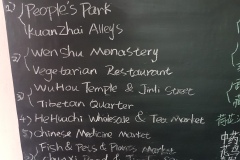 1) People's Park
Kuanzhai Alleys
2) Wenshu Monastery
Vegetarian Restaurant
3) Wuhou Temple & Jinli Street
Tibetan Quarter
4) Hehuachi Wholesale & Tea Market
5) Chinese Medicine Market
Fish & Pets & Plants Market
中药